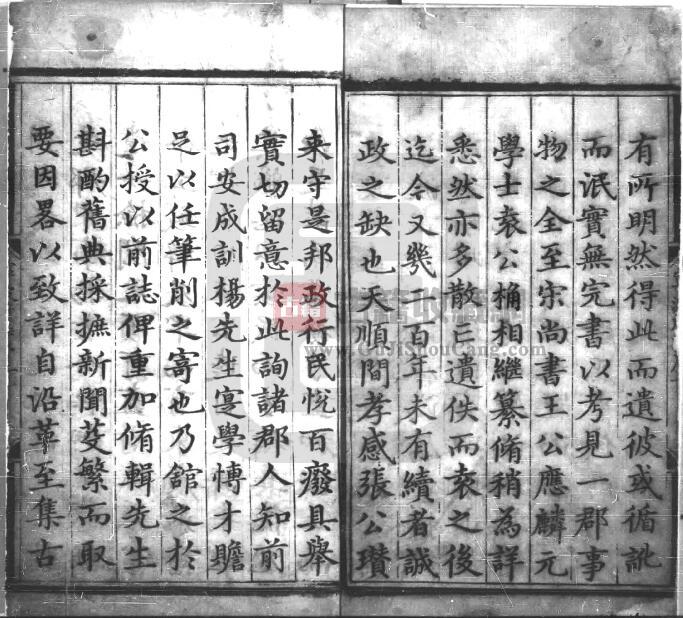 有所明然得此而遺彼或循訛
而泯實無完書以考見一郡事
物之全至宋尚書王公應麟元
學士袁公桷相繼纂脩稍為詳
悉然亦多散亡遺佚而袁之後
迄今又幾二百年未有續者誠
政之缺也天順間孝感張公瓚
来守是邦政行民恱百癈具舉
實切留意於此詢諸郡人知前
司安成訓楊先生寔學愽才贍
足以任筆削之寄也乃舘之於
公授以前誌俾重加脩輯先生
斟酌舊典採摭新聞芟繁而取
要因畧以致詳自沿革至集古
古籍
www.GuJiShouCang.com